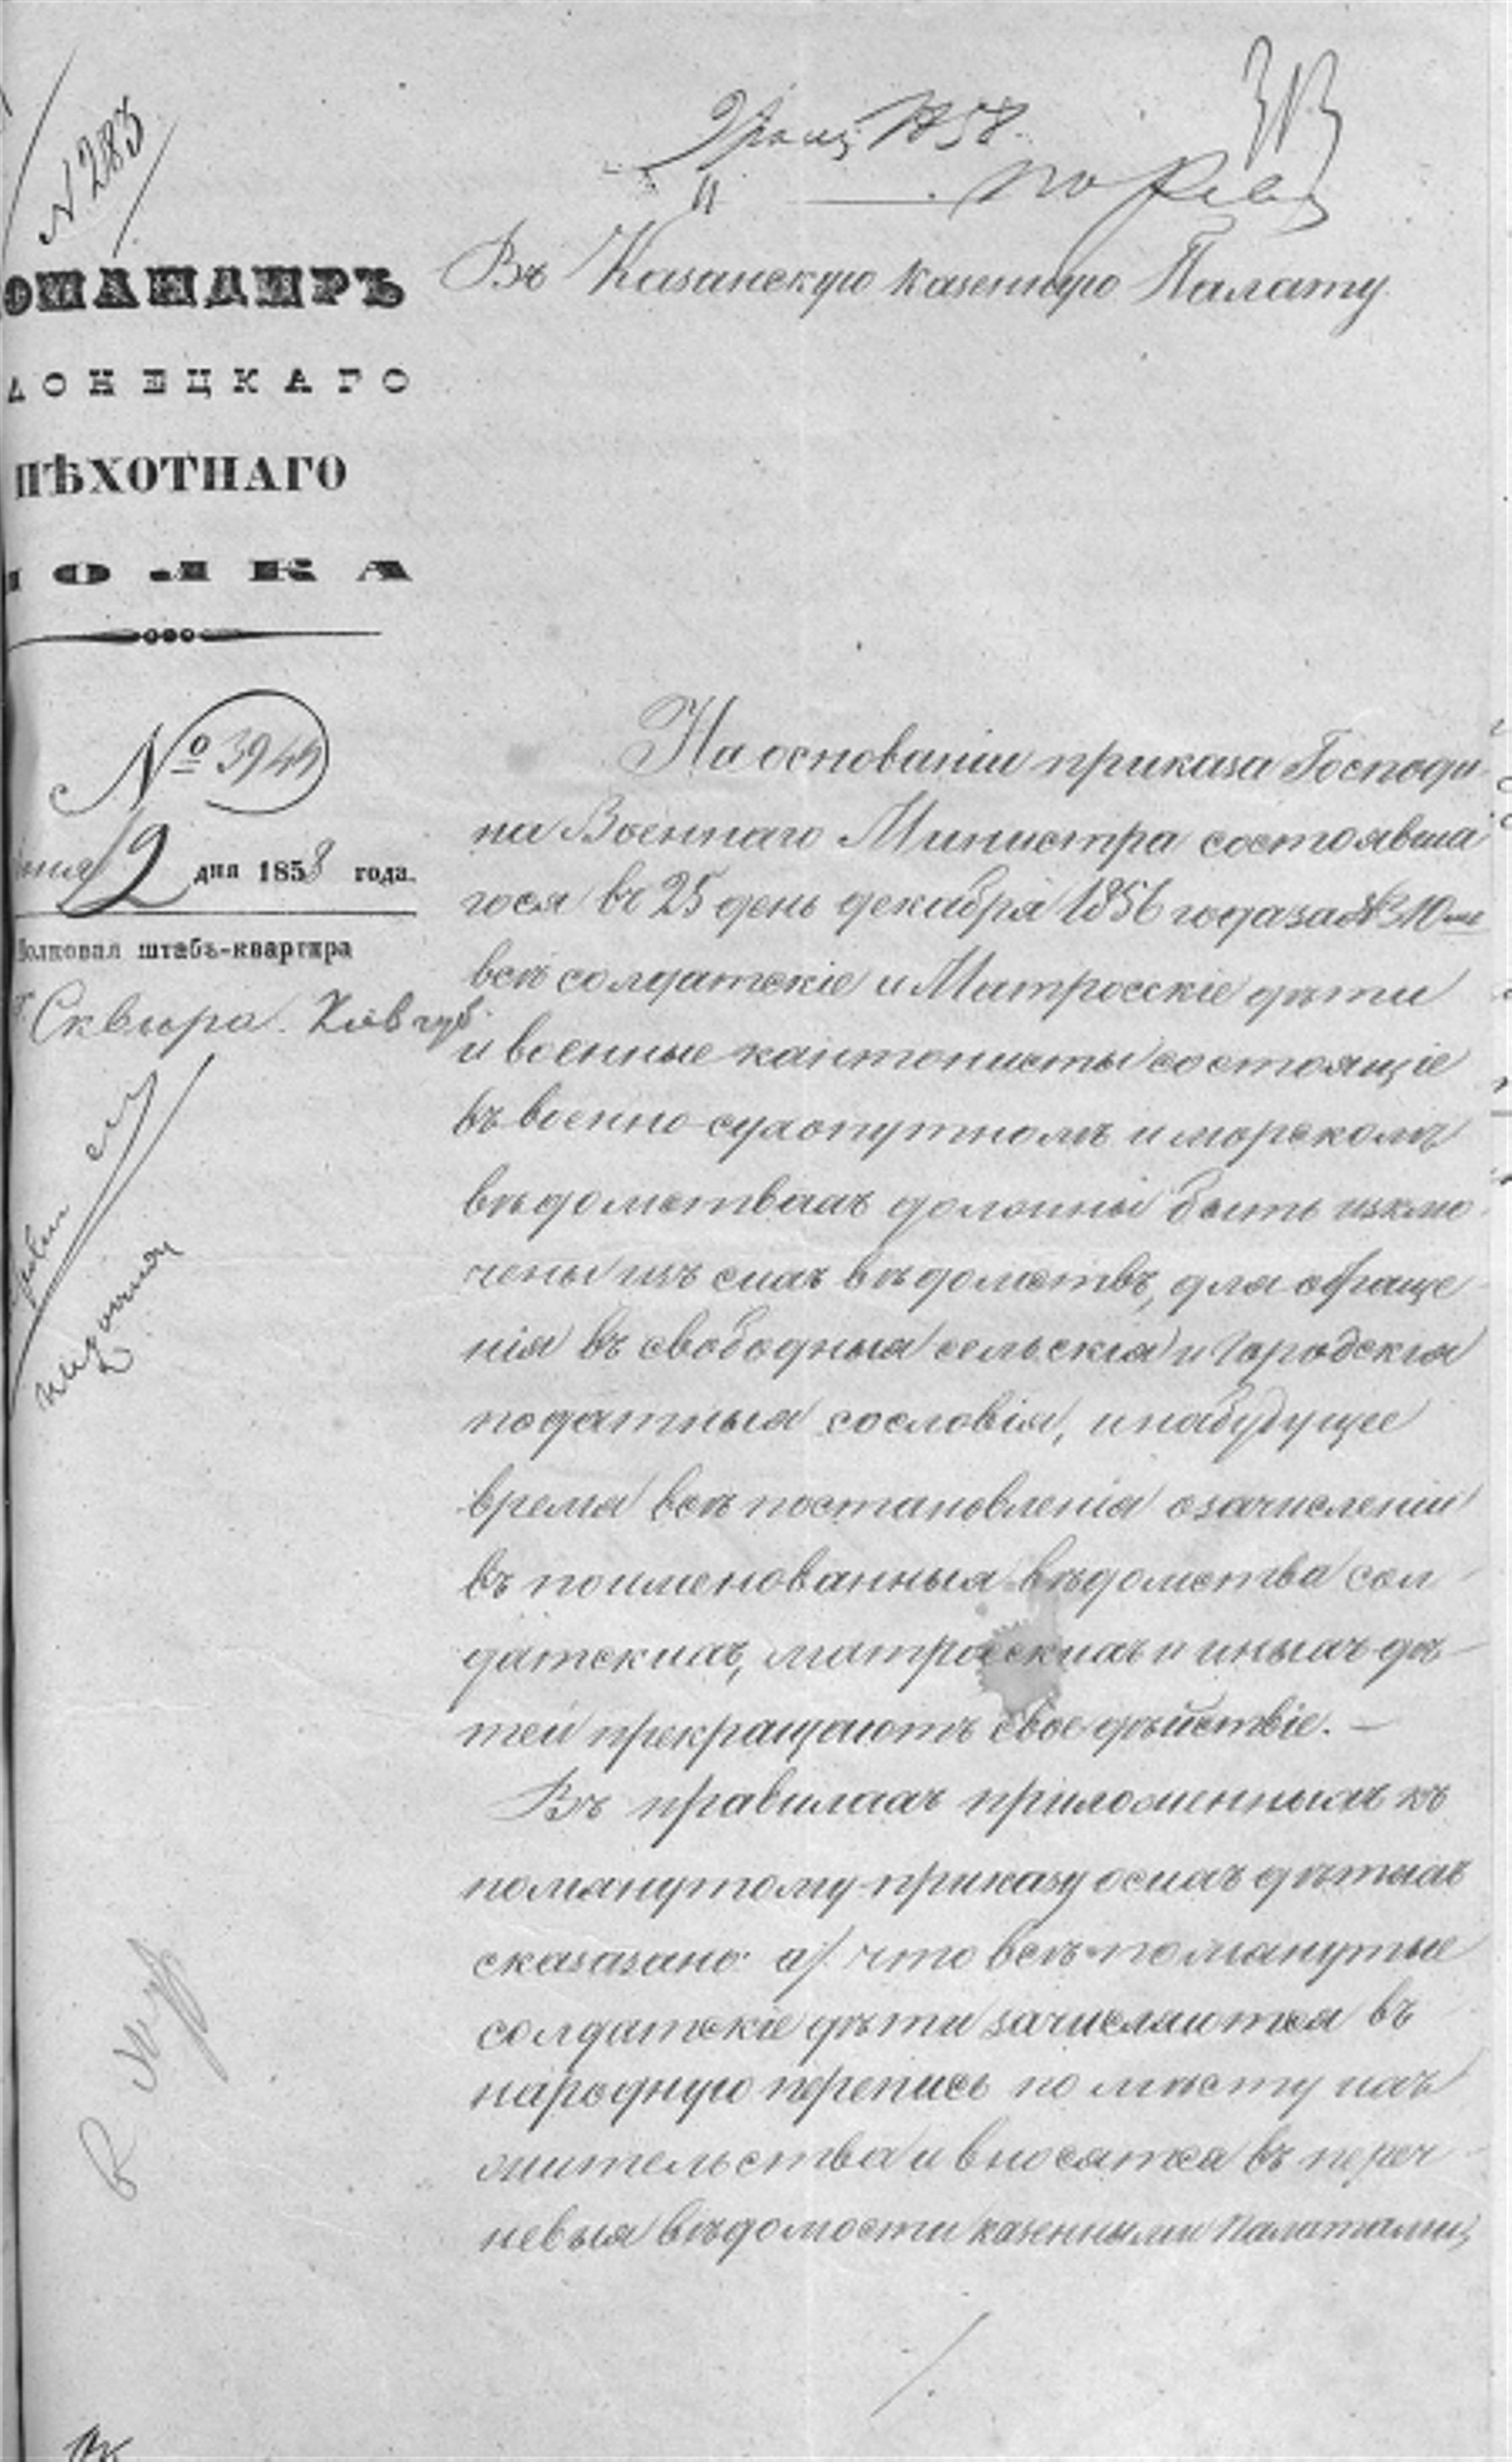 № 283
1858.
по Рев
ОМАНДИРЪ
ДОНЕЦКАГО
ПѢХОТНАГО
ПОЛКА
№ 3944
2 дня 1858 года.
Полковая штабъ-квартира
г. Сквира. Кіев губ.
Въ Казанскую казенную Палату
На основаніи приказа Господи-
на Военнаго Министра состоявша-
гося въ 25 день декабря 1856 года за № 310мъ
всѣ солдатскіе и Матросскіе дѣти
и военные кантонисты состоящіе
въ военно-сухопутномъ и морскомъ
вѣдомствахъ должны быть изклю-
чены изъ сихъ вѣдомствъ, для обраще-
нія въ свободныя сельскія и городскія
податныя сословія, и на будущее
время всѣ постановленія о зачисленіи
въ поименованныя вѣдомства сол-
датскихъ, матросскихъ и иныхъ дѣ-
тей прекращаютъ свое дѣйствіе. —
Въ правилахъ приложенныхъ къ
помянутому приказу о сихъ дѣтяхъ
сказазано: а/. что всѣ помянутые
солдатскіе дѣти зачисляются въ
народную перепись по мѣсту ихъ
жительства и вносятся въ переч-
невыя вѣдомости казенными Палатами,